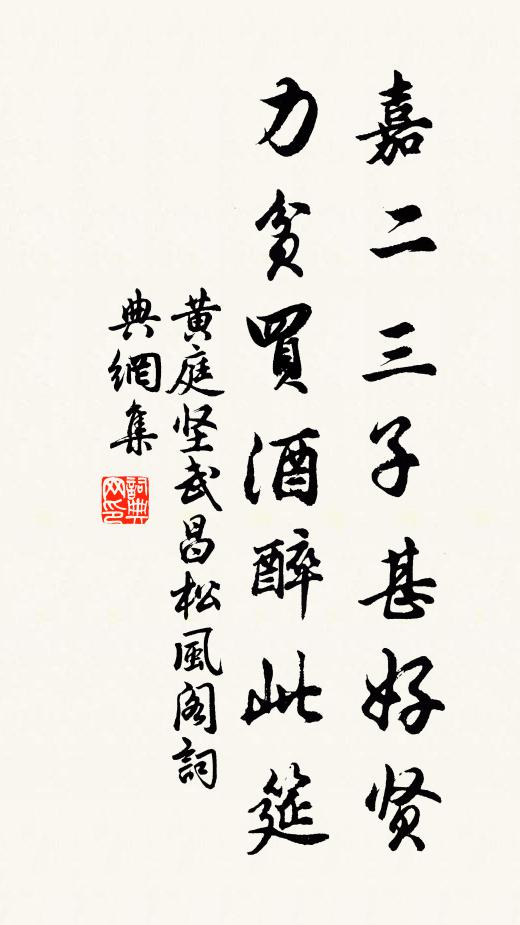 嘉二三子甚好贤
力贫買酒醉此筵
黄庭坚武昌松風阁詞
典網集
詞典
网印